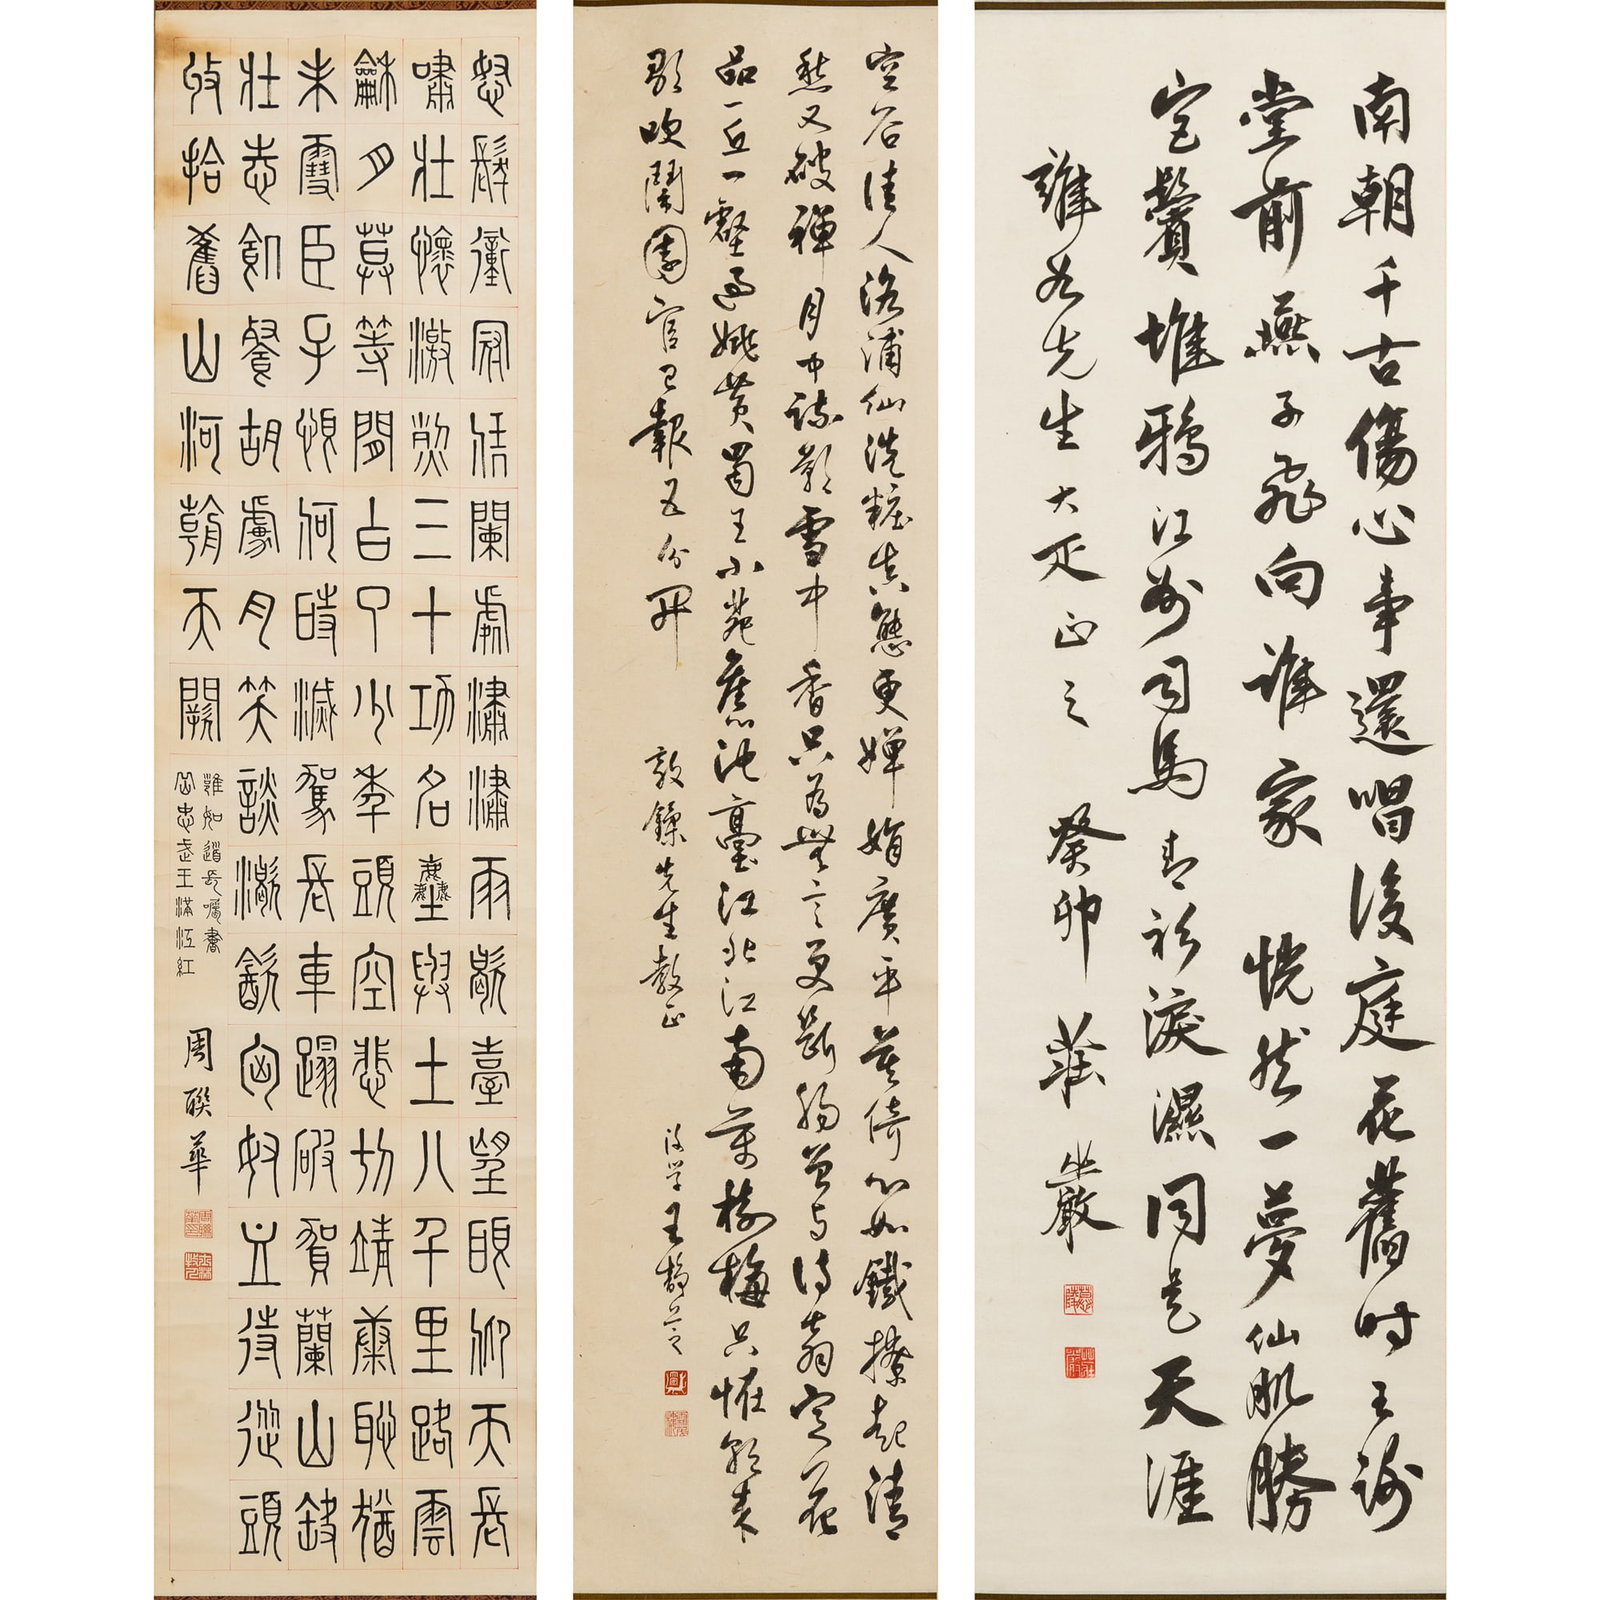 南朝千古傷心事還唱後庭花舊時王謝
堂前燕子飛向誰家 恍然一夢仙肌勝
宮鬢堆鴉江州司馬青衫淚濕同是天涯
雖如先生大疋正之 癸卯 莊嚴
空谷佳人洛浦仙洗粧真態更嬋娟廣平莫倚心如鐵撩起清
愁又破禪月中疎影雪中香只為無言更斷腸曾與詩翁定花
品一丘一壑過姚黃蜀王小苑舊池臺江北江南萬樹梅只怪朝來
歌吹鬧園官已報五分開 敦先生教正 後學王靜芝
怒髮衝冠憑闌處潚潚雨歇臺望眼仰天長
嘯壯懷激烈三十功名塵與土八千里路雲
龢月莫等閒白了少年頭空悲切靖康恥猶
未雪臣子恨何時滅駕長車蹋破賀蘭山缺
壯志飢餐胡虜肉笑談渴飲匈奴血待從頭
收拾舊山河朝天闕
雖如道長囑書
岳忠武王滿江紅
周聯華